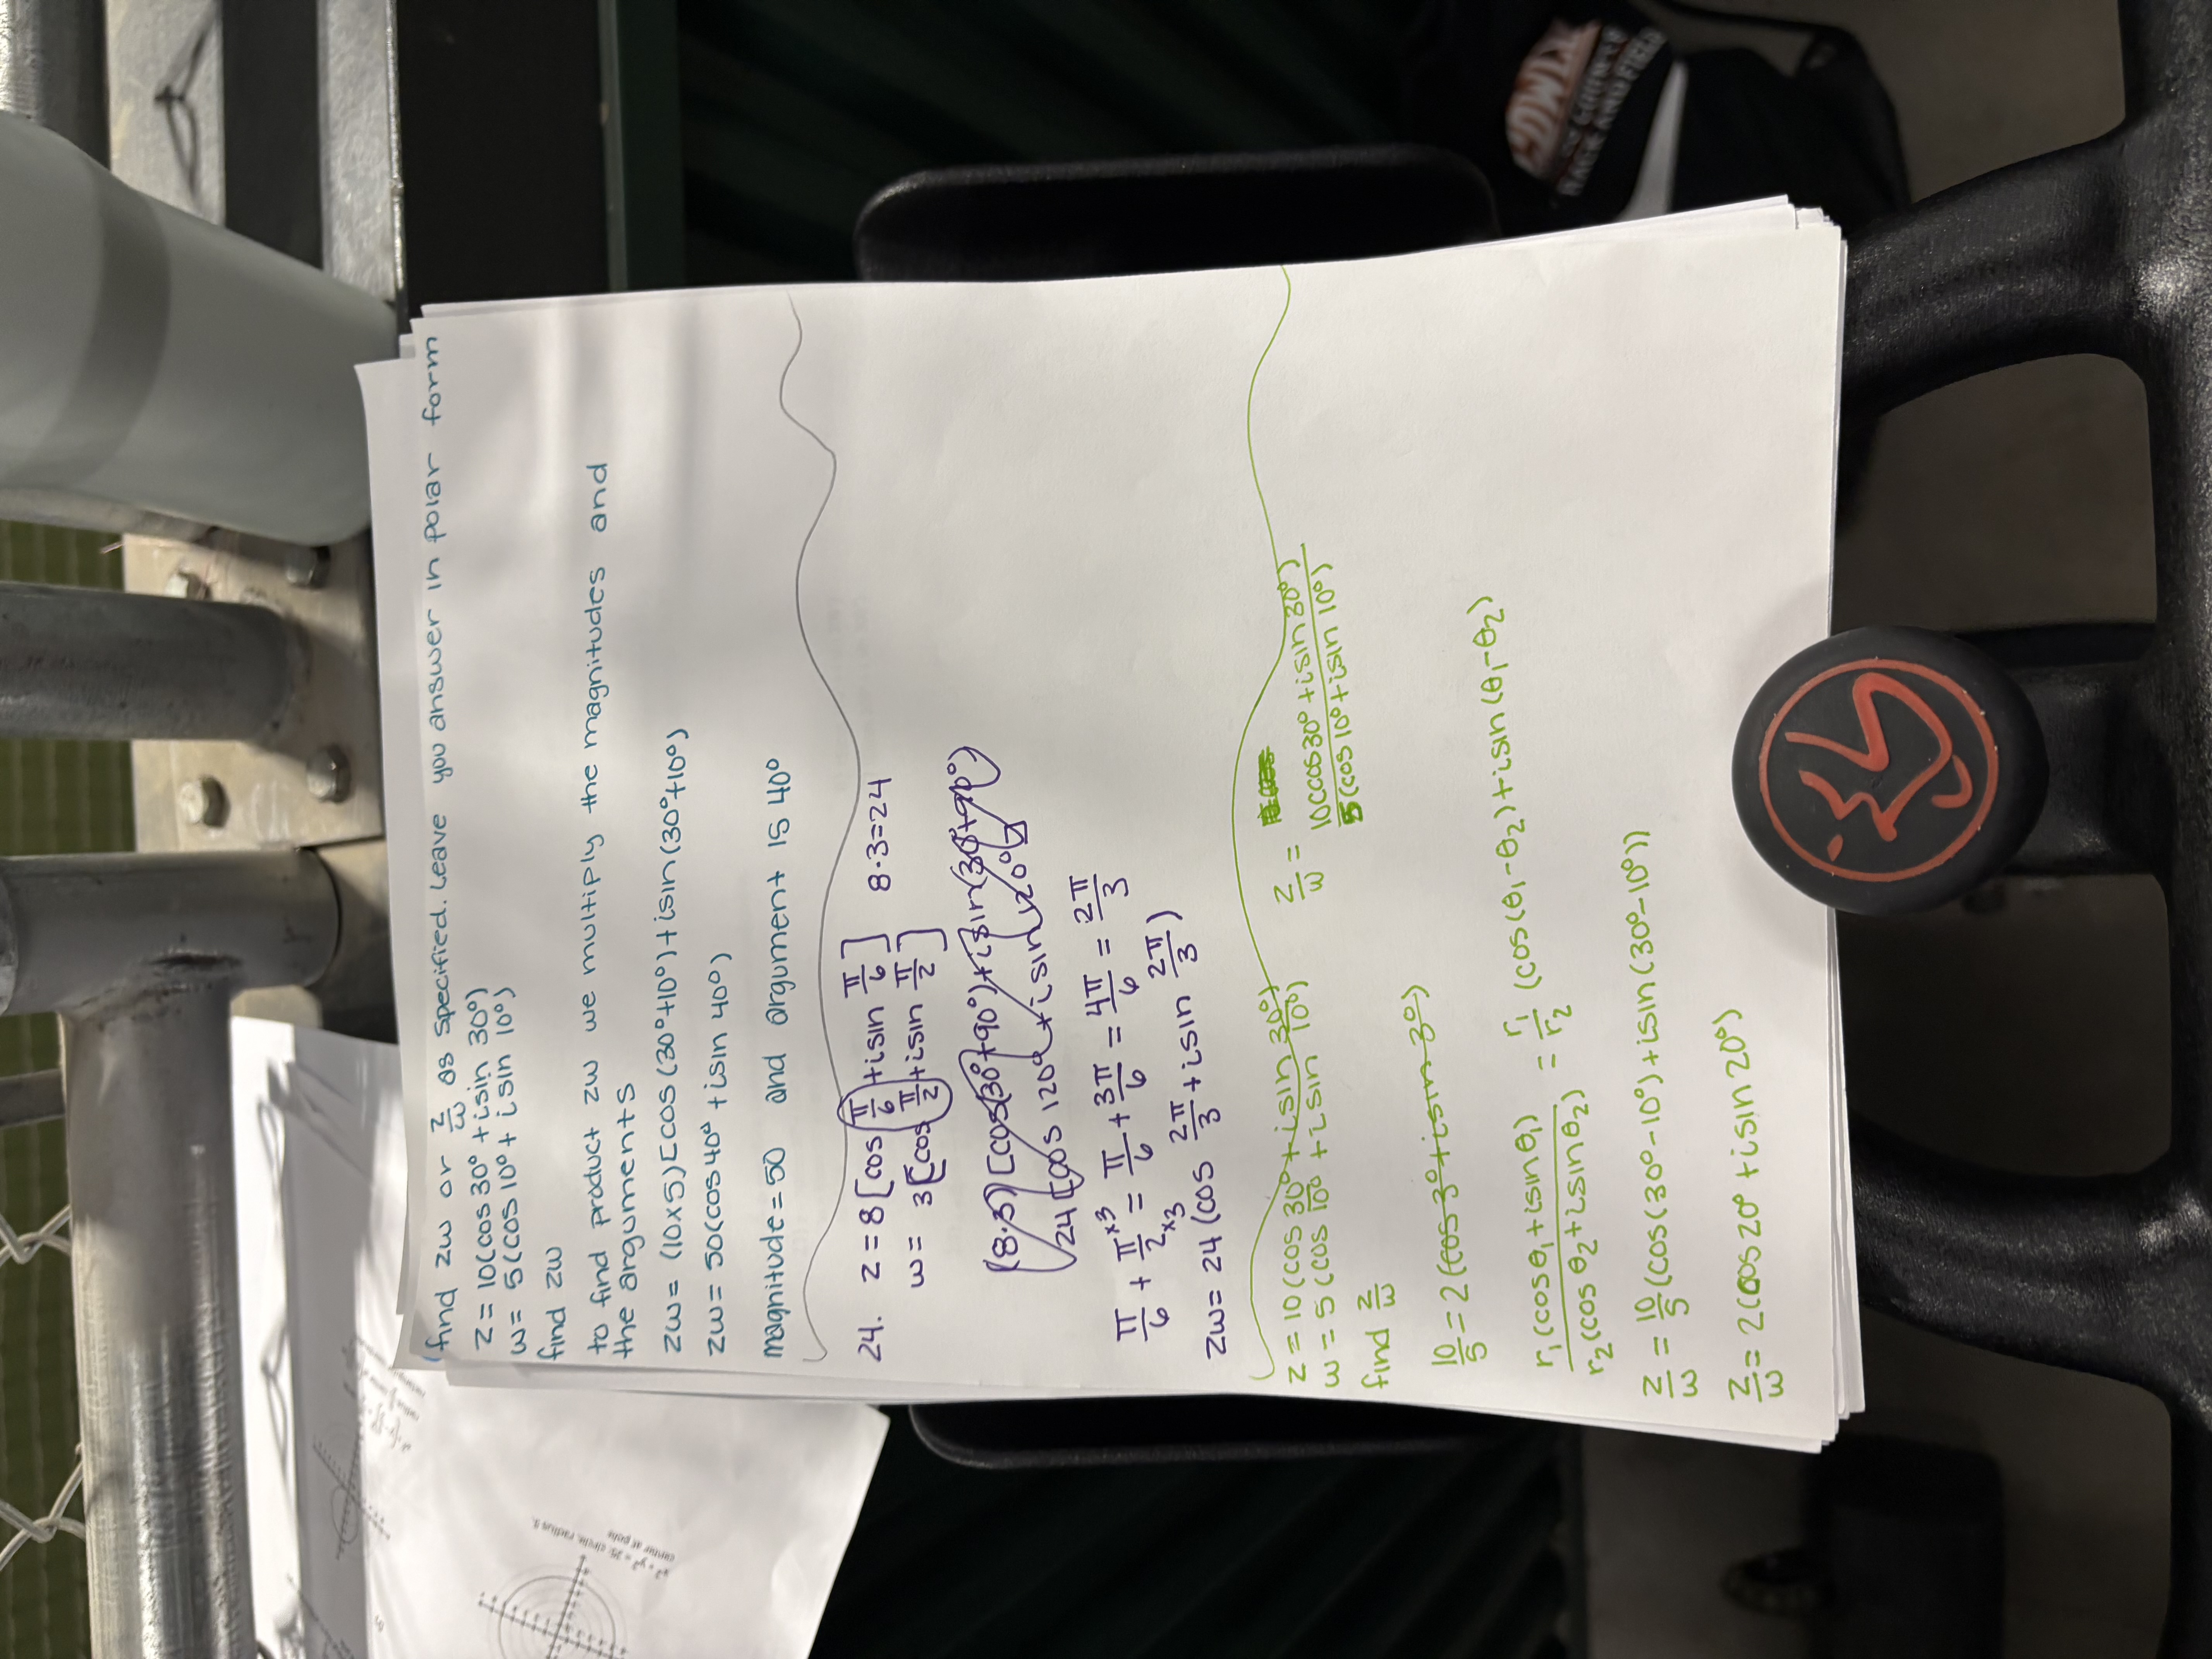 find zw or z/w as specified. Leave you answer in polar form
z = 10(cos 30° + isin 30°)
w = 5(cos 10° + isin 10°)
find zw
to find product zw we multiply the magnitudes and
the arguments
zw = (10x5)[cos(30°+10°)+isin(30°+10°)
zw = 50(cos40° + isin 40°)
magnitude = 50 and argument is 40°
24. z = 8[cos π/6 + isin π/6] 8·3=24
w = 3[cos π/2 + isin π/2]
(8·3)[cos(30°+90°)+isin(30°+90°)
24[cos 120° + isin 120°]
π/6 + π/2 x3 x3 = π/6 + 3π/6 = 4π/6 = 2π/3
zw = 24(cos 2π/3 + isin 2π/3)
z = 10(cos 30° + isin 30°)
w = 5(cos 10° + isin 10°)
z/w = 10(cos30° + isin30°)/5(cos10° + isin 10°)
find z/w
10/5 = 2(cos 3° + isin 3°)
r1(cosθ1 + isinθ1)/r2(cosθ2 + isinθ2) = r1/r2 (cos(θ1-θ2)+isin(θ1-θ2)
z/w = 10/5(cos(30°-10°)+isin(30°-10°))
z/w = 2(cos20° + isin20°)
x² + y² = 25: circle, radius 5,
center at pole